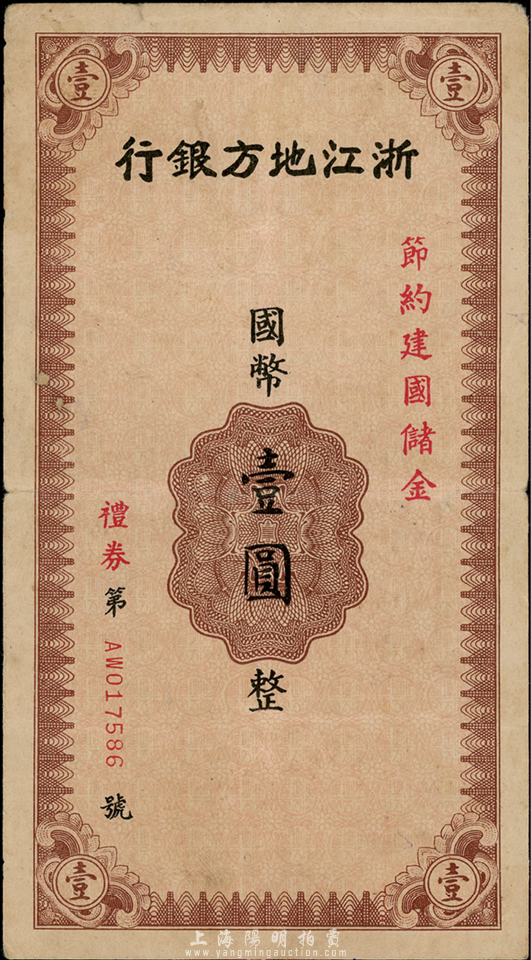 壹
壹
浙江地方銀行
節約建國儲金
國幣
壹圓
整
禮券第 AW017586 號
壹
壹
上海陽明拍賣
www.yangmingauction.com